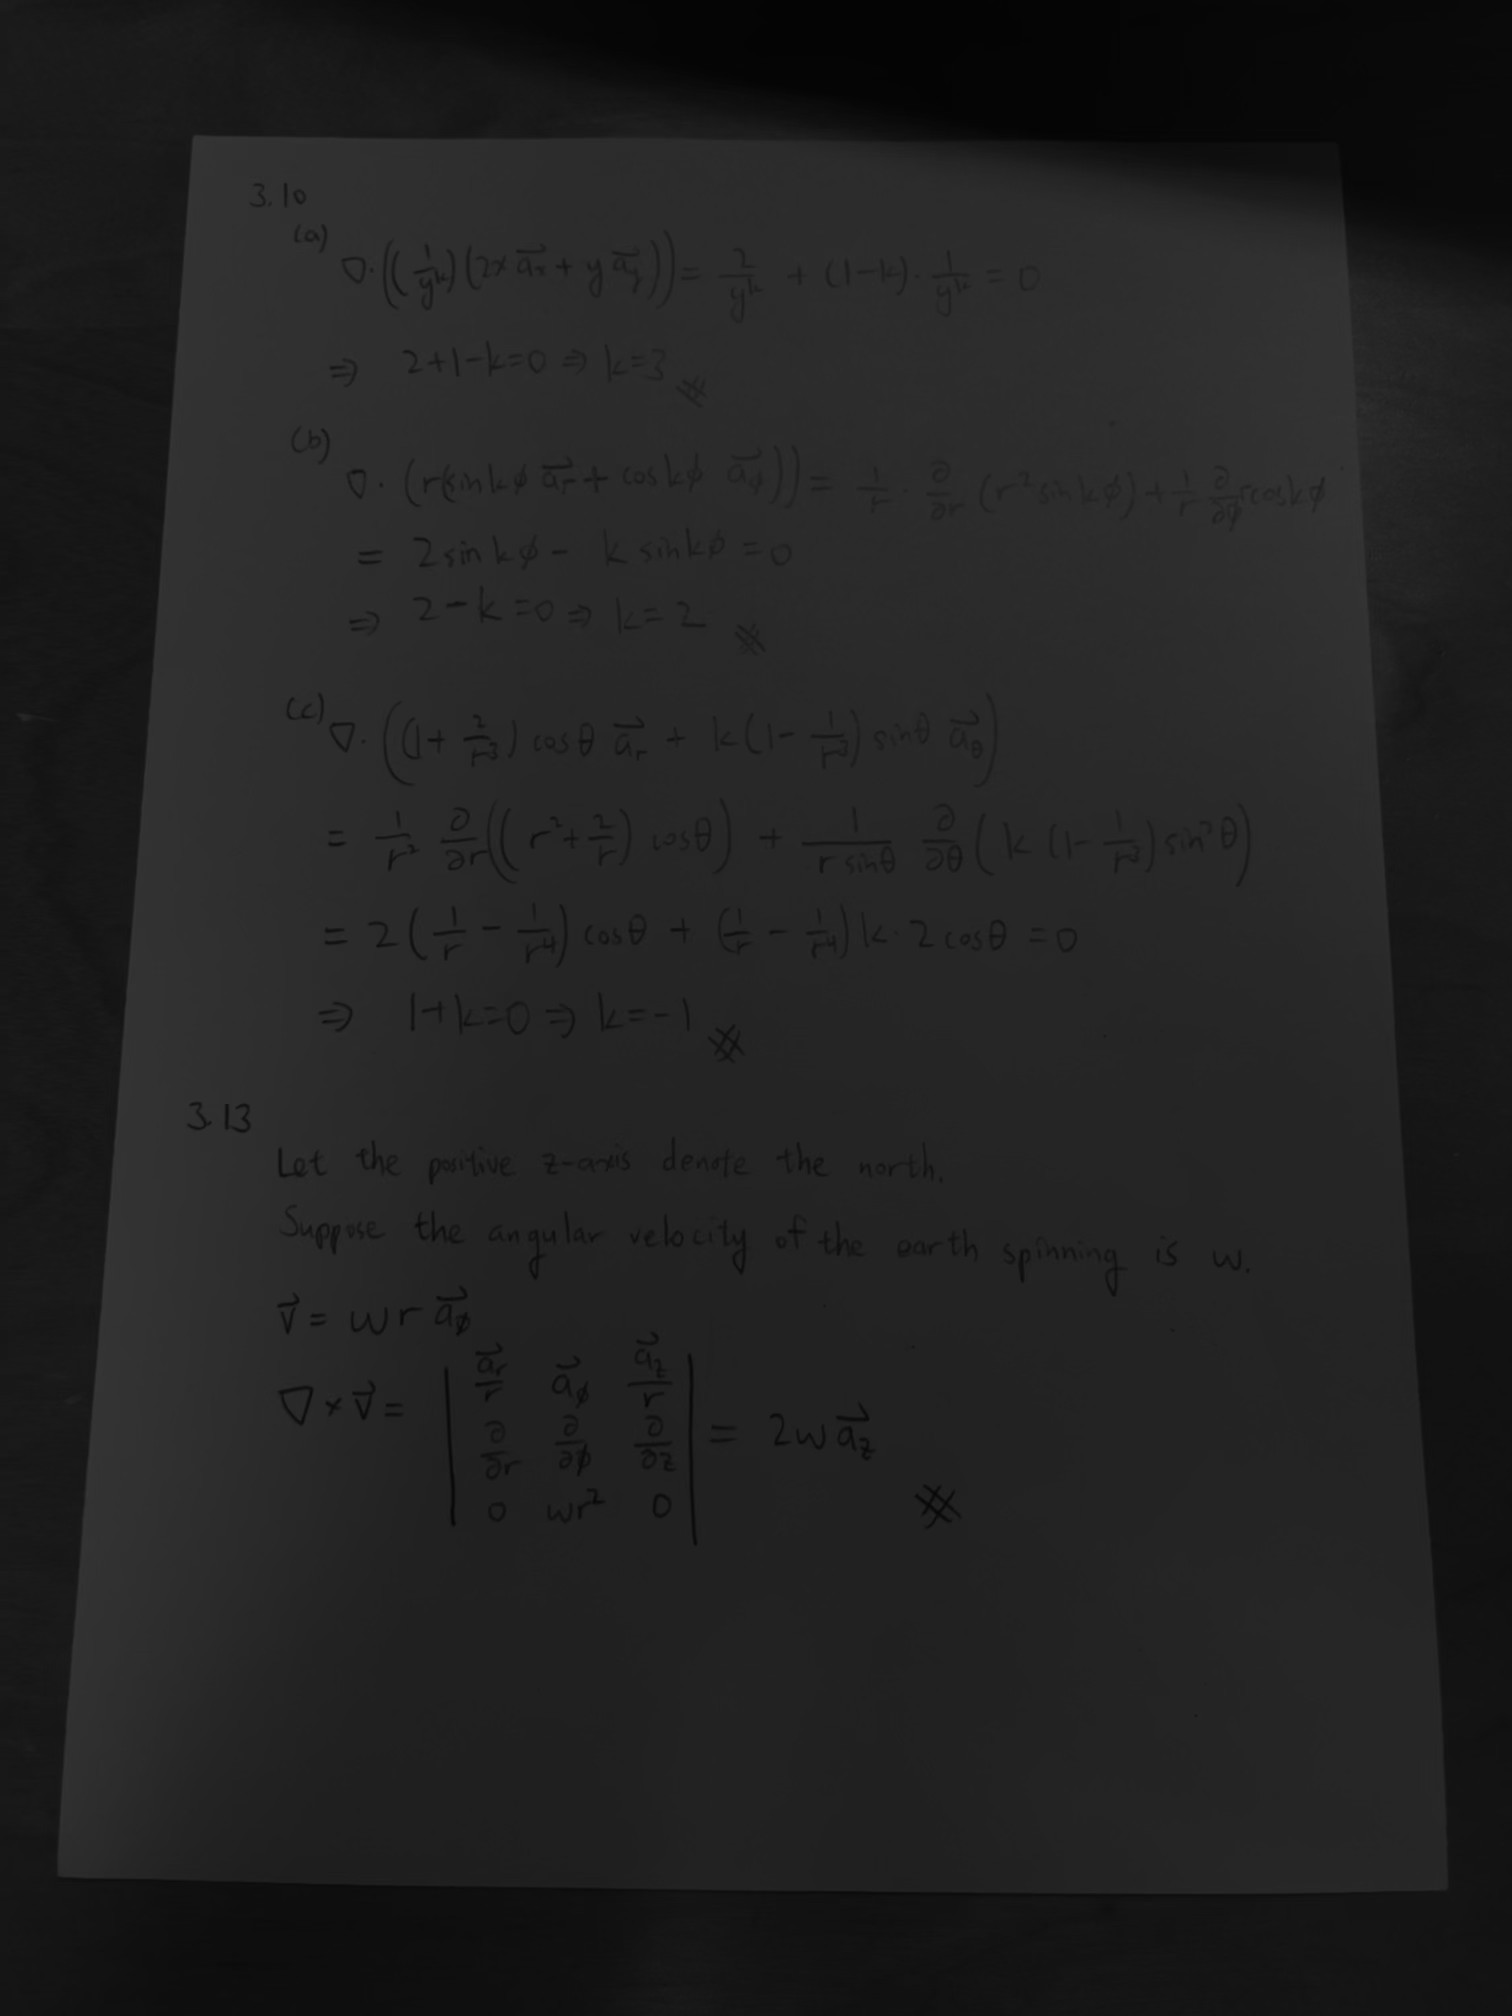 3.10
(a)
∇·((1/y^k)(2x a⃗x + y a⃗y)) = 2/y^k + (1-k)·1/y^k = 0
⇒ 2+1-k=0 ⇒ k=3
(b)
∇·(r(sinkϕ a⃗r + coskϕ a⃗ϕ)) = 1/r · ∂/∂r (r² sinkϕ) + 1/r ∂/∂ϕ r coskϕ
= 2sinkϕ - k sinkϕ = 0
⇒ 2-k=0 ⇒ k=2
(c) ∇·((1+2/r³) cosθ a⃗r + k(1-1/r³) sinθ a⃗θ)
= 1/r² ∂/∂r((r²+2/r) cosθ) + 1/(r sinθ) ∂/∂θ(k(1-1/r³) sin²θ)
= 2(1/r - 1/r⁴) cosθ + (1/r - 1/r⁴) k·2cosθ = 0
⇒ 1+k=0 ⇒ k=-1
3.13
Let the positive z-axis denote the north.
Suppose the angular velocity of the earth spinning is w.
v⃗ = wr a⃗ϕ
∇×v⃗ = | a⃗r/r a⃗ϕ a⃗z/r ; ∂/∂r ∂/∂ϕ ∂/∂z ; 0 wr² 0 | = 2w a⃗z